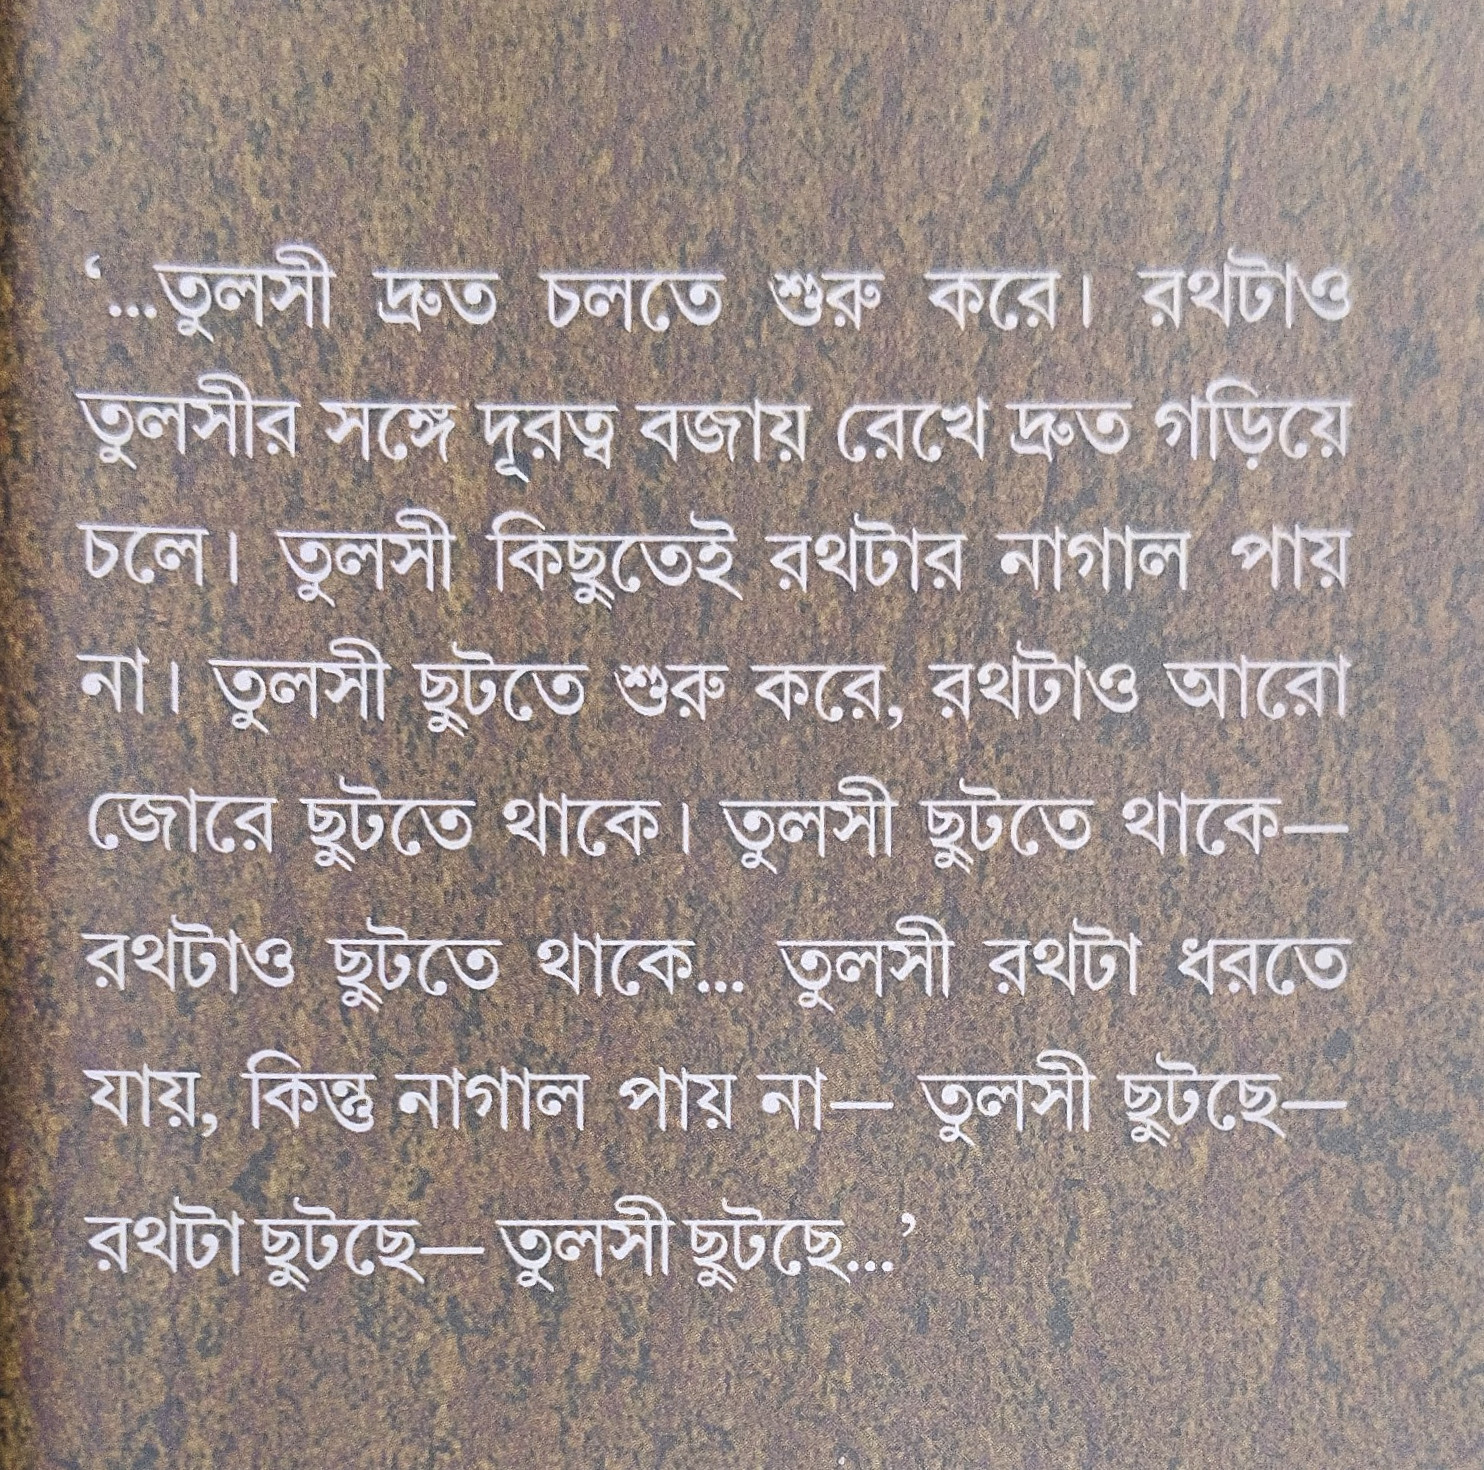 ‘...তুলসী দ্রুত চলতে শুরু করে। রথটাও
তুলসীর সঙ্গে দূরত্ব বজায় রেখে দ্রুত গড়িয়ে
চলে। তুলসী কিছুতেই রথটার নাগাল পায়
না। তুলসী ছুটতে শুরু করে, রথটাও আরো
জোরে ছুটতে থাকে। তুলসী ছুটতে থাকে—
রথটাও ছুটতে থাকে... তুলসী রথটা ধরতে
যায়, কিন্তু নাগাল পায় না— তুলসী ছুটছে—
রথটা ছুটছে— তুলসী ছুটছে...’